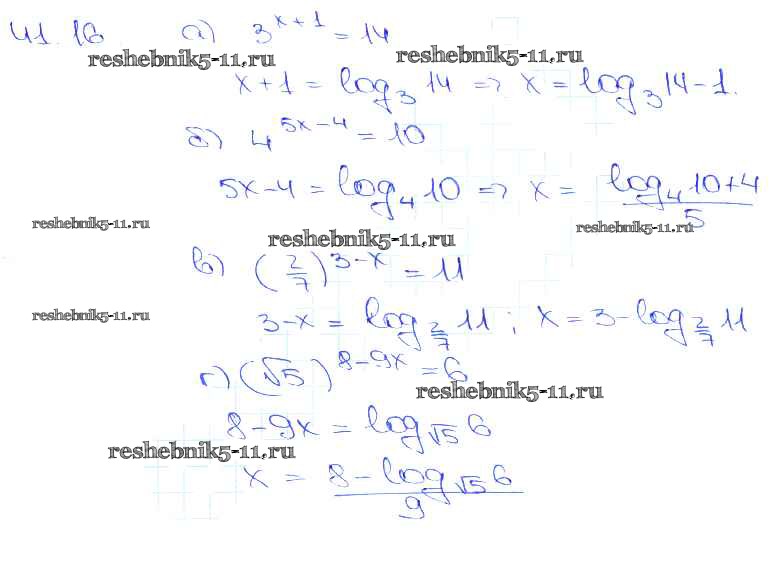 41.16 а) 3^{x+1} = 14
reshebnik5-11.ru reshebnik5-11.ru
x+1 = log_3 14 => x = log_3 14 - 1.
б) 4^{5x-4} = 10
5x-4 = log_4 10 => x = \frac{log_4 10+4}{5}
reshebnik5-11.ru reshebnik5-11.ru
reshebnik5-11.ru
в) (\frac{2}{7})^{3-x} = 11
reshebnik5-11.ru 3-x = log_{\frac{2}{7}} 11; x = 3-log_{\frac{2}{7}} 11
г) (√5)^{8-9x} = 6
reshebnik5-11.ru
8-9x = log_{√5} 6
reshebnik5-11.ru
x = \frac{8-log_{√5} 6}{9}